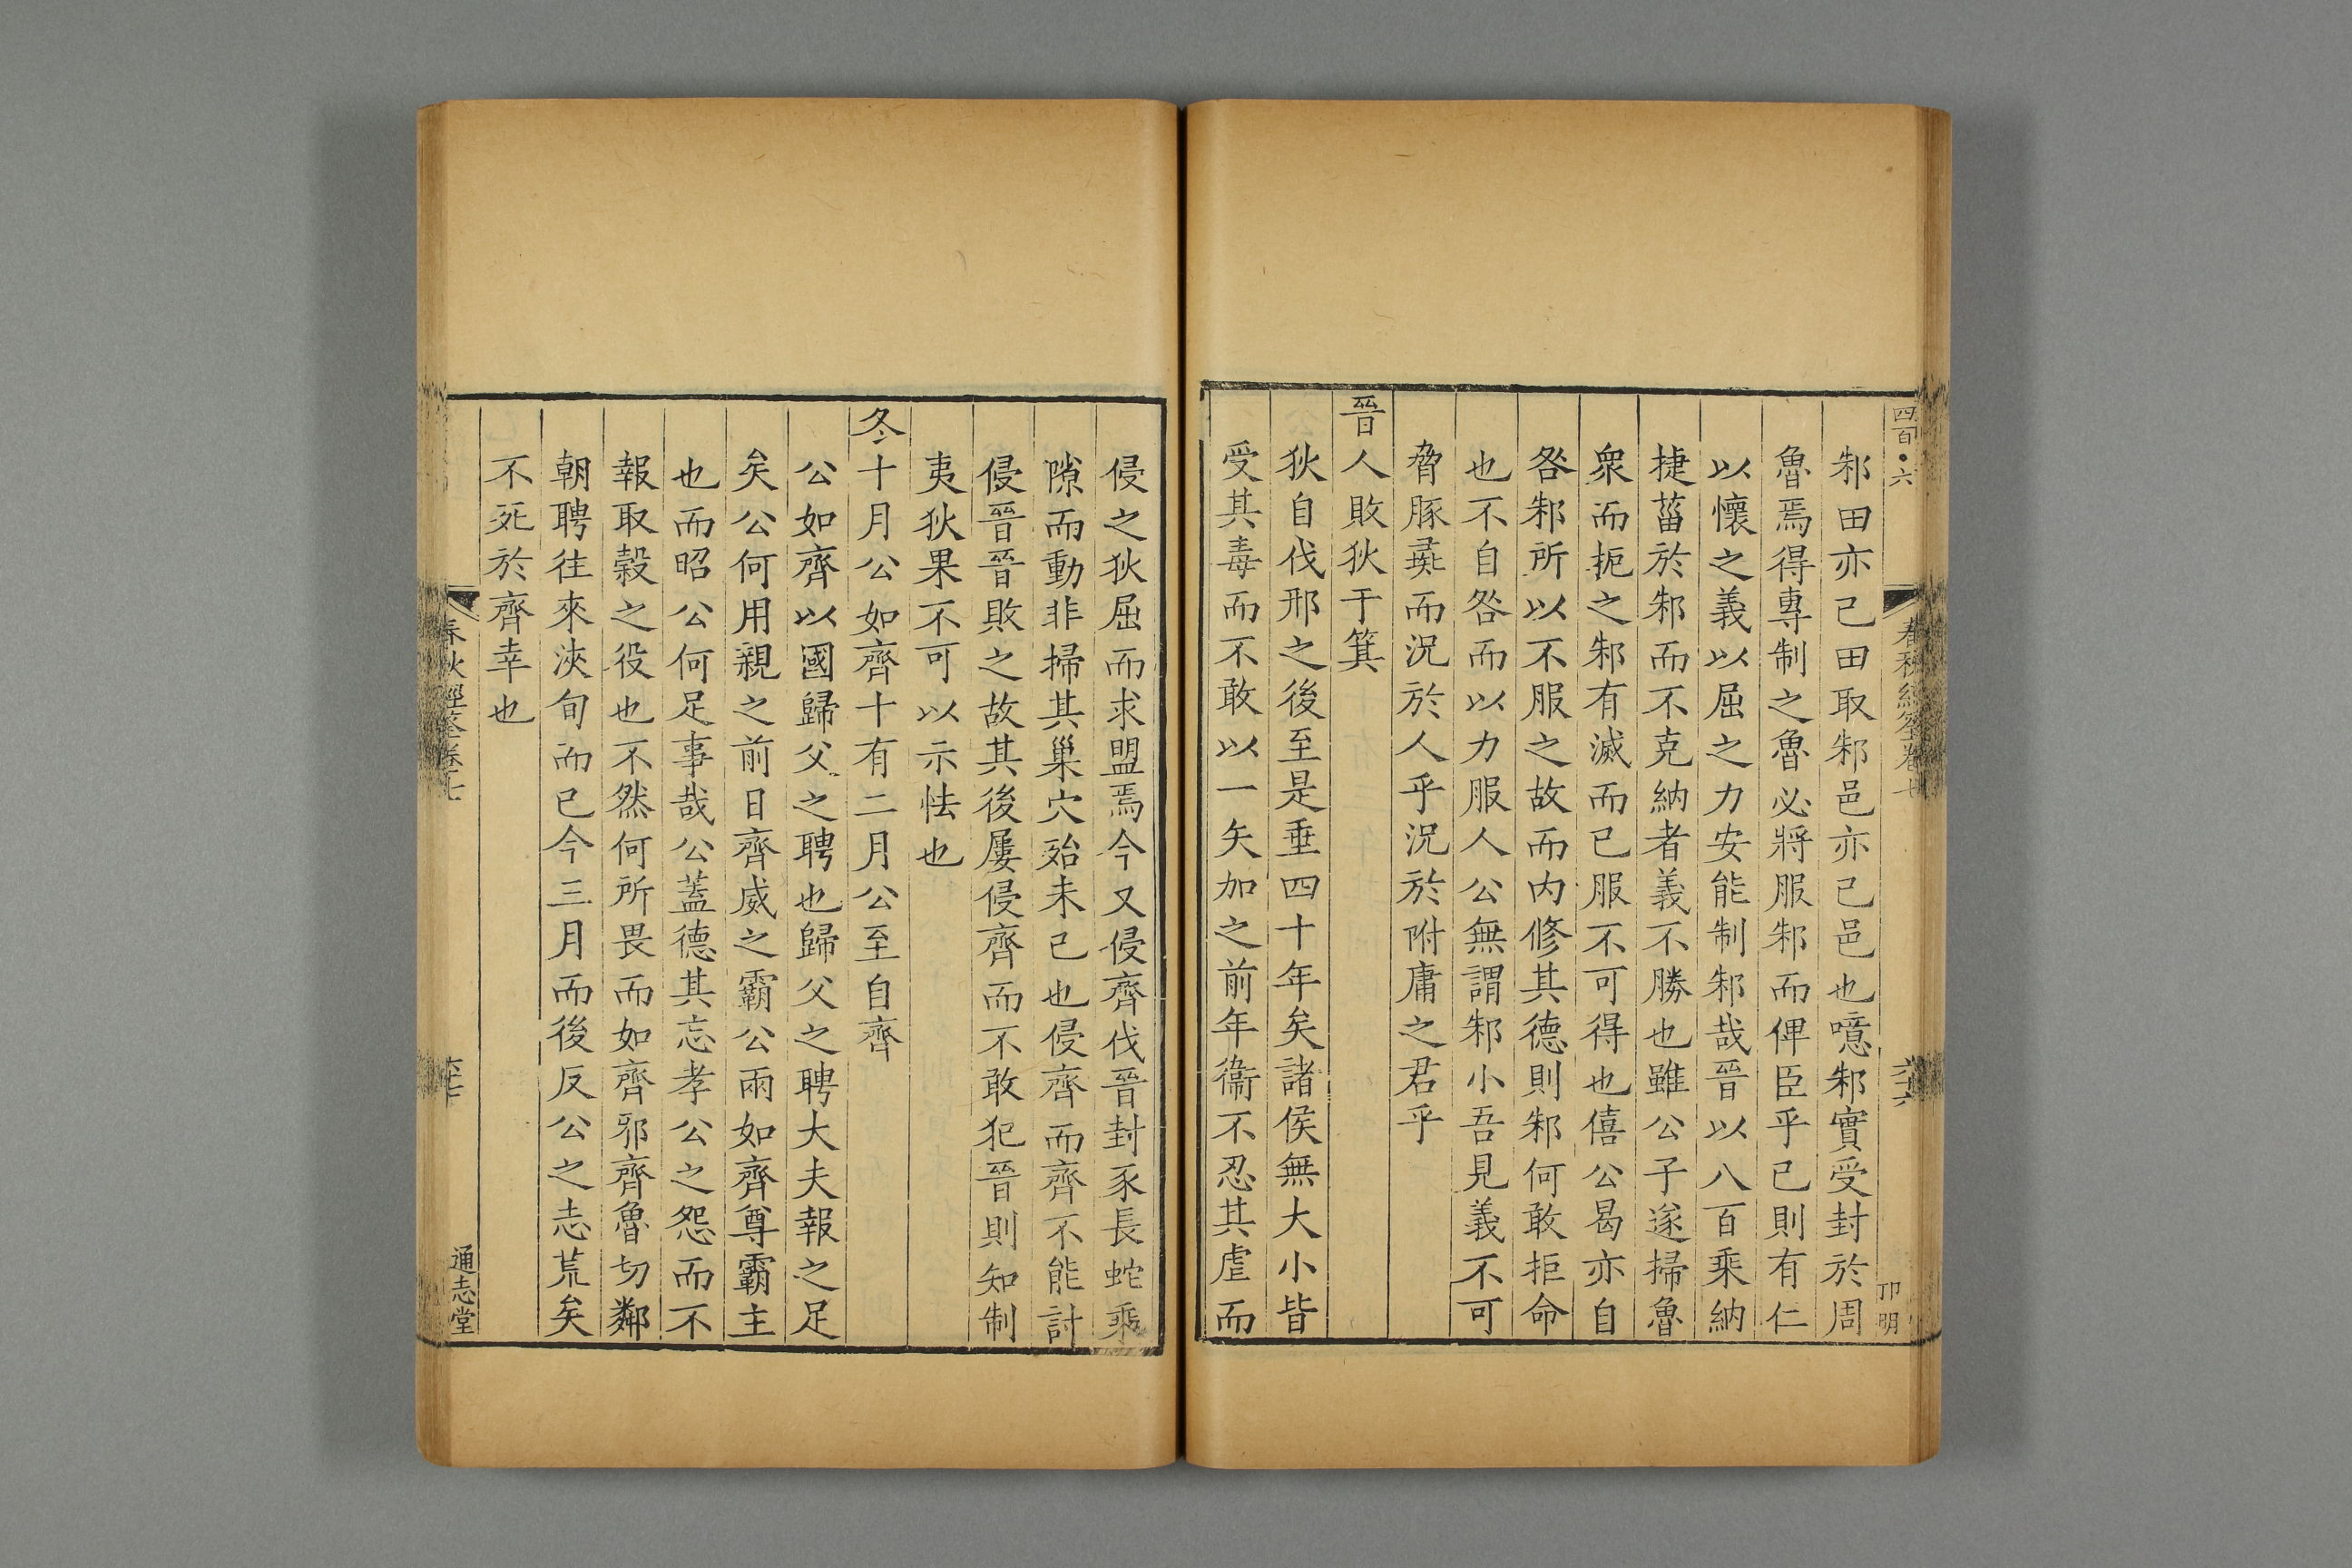 四百•六
春秋經筌卷七
六十六
卭明
邾田亦己田取邾邑亦己邑也噫邾實受封於周
魯焉得專制之魯必將服邾而俾臣乎己則有仁
以懷之義以屈之力安能制邾哉晉以八百乘納
捷菑於邾而不克納者義不勝也雖公子遂掃魯
衆而扼之邾有滅而已服不可得也僖公曷亦自
咎邾所以不服之故而内修其德則邾何敢拒命
也不自咎而以力服人公無謂邾小吾見義不可
脅豚彘而況於人乎況於附庸之君乎
晉人敗狄于箕
狄自伐邢之後至是垂四十年矣諸侯無大小皆
受其毒而不敢以一矢加之前年衞不忍其虐而
侵之狄屈而求盟焉今又侵齊伐晉封豕長蛇乘
隙而動非掃其巢穴殆未已也侵齊而齊不能討
侵晉晉敗之故其後屢侵齊而不敢犯晉則知制
夷狄果不可以示怯也
冬十月公如齊十有二月公至自齊
公如齊以國歸父之聘也歸父之聘大夫報之足
矣公何用親之前日齊威之霸公兩如齊尊霸主
也而昭公何足事哉公蓋德其忘孝公之怨而不
報取穀之役也不然何所畏而如齊邪齊魯切鄰
朝聘往來浹旬而已今三月而後反公之志荒矣
不死於齊幸也
春秋經筌卷七
六十七
通志堂